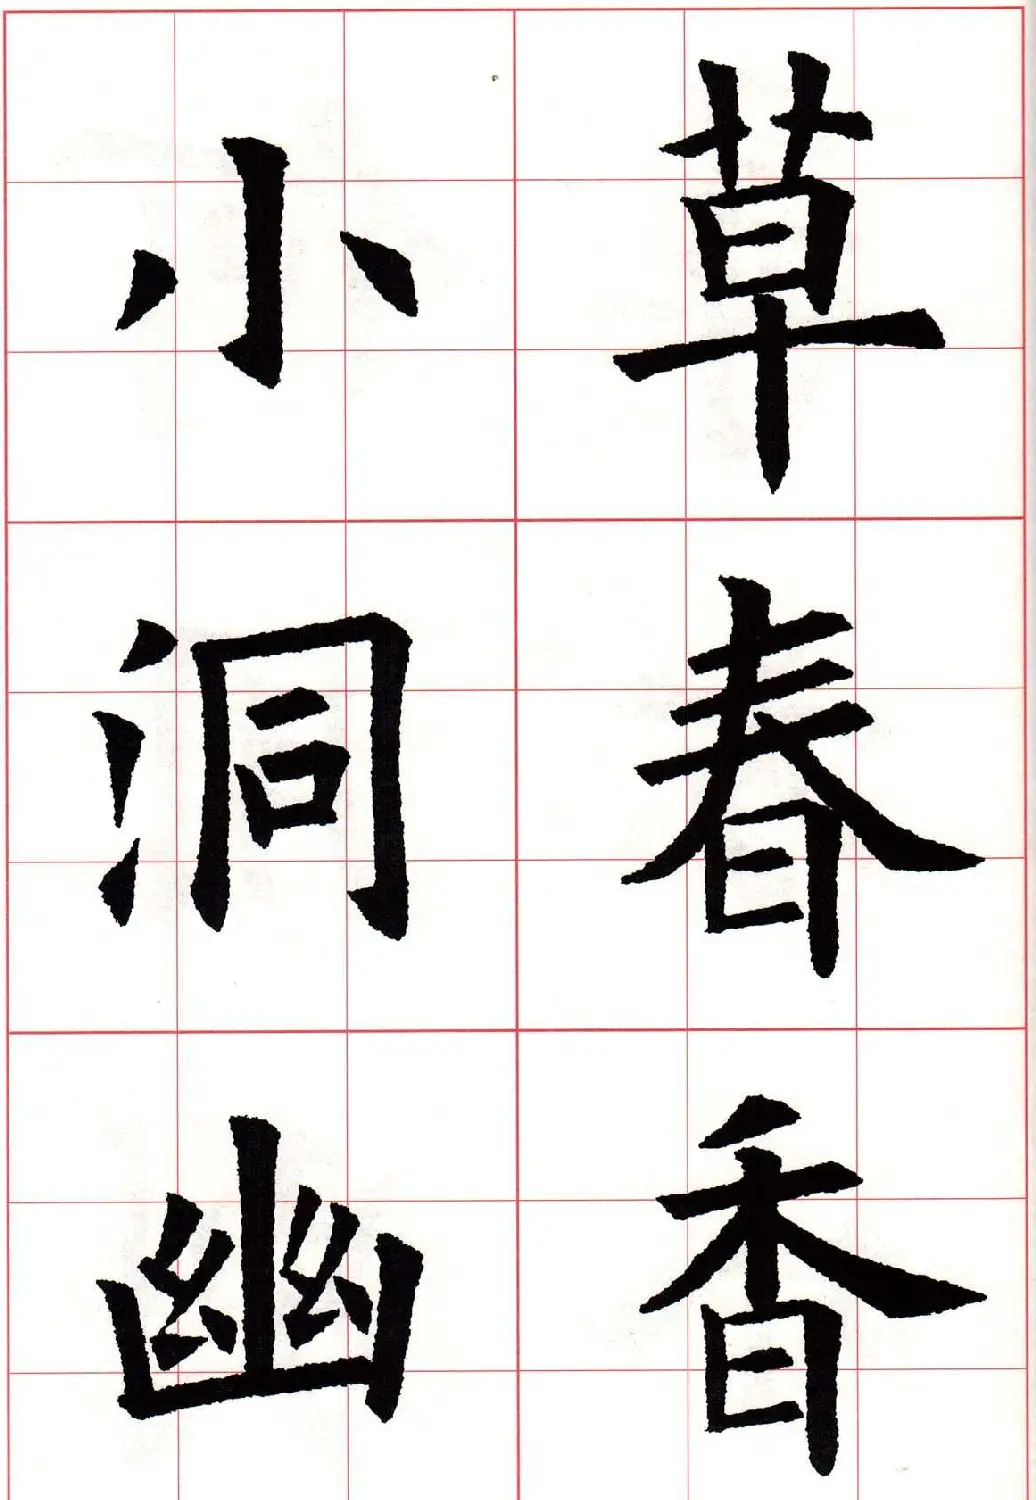 草春香
小洞幽